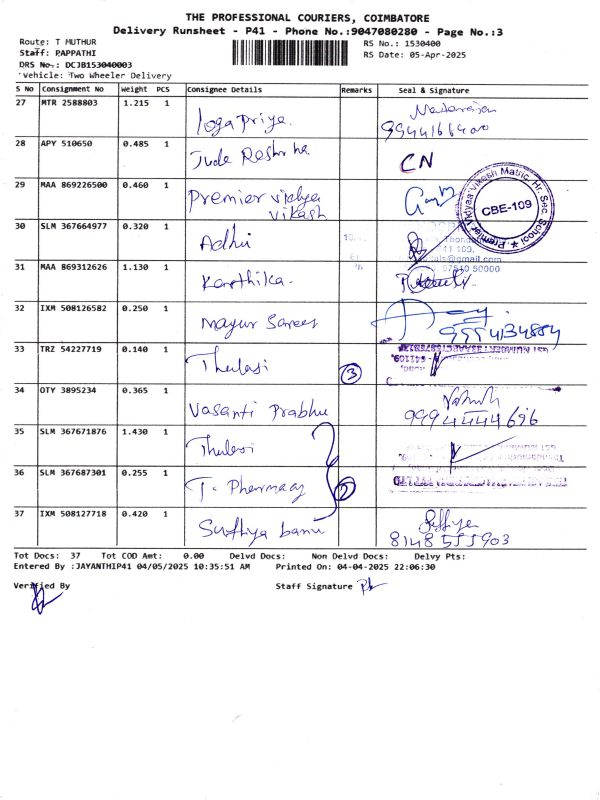 THE PROFESSIONAL COURIERS, COIMBATORE
Delivery Runsheet - P41 - Phone No.:9047080280 - Page No.:3
Route: T MUTHUR
Staff: PAPPATHI
DRS No.: DCJB153040003
Vehicle: Two Wheeler Delivery
RS No.: 1530400
RS Date: 05-Apr-2025
S No Consignment No Weight PCS Consignee Details Remarks Seal & Signature
27 MTR 2588803 1.215 1 logapriya. Natarajan
28 APY 510650 0.485 1 Jude Reshma CN
29 MAA 869226500 0.460 1 Premier vidya
vikash
Premier Vidyaa Vikash Matric. Hr. Sec. School
CBE-109
30 SLM 367664977 0.320 1 Adhi
31 MAA 869312626 1.130 1 Karthika.
32 IXM 508126582 0.250 1 Mayur Sarees
33 TRZ 54227719 0.140 1 Thulasi 3
34 OTY 3895234 0.365 1 Vasanti Prabhu
9994444696
35 SLM 367671876 1.430 1 Thulasi
36 SLM 367687301 0.255 1 T. Pharmacy 2
37 IXM 508127718 0.420 1 Suffiya banu Suffiya
8148555903
Tot Docs: 37 Tot COD Amt: 0.00 Delvd Docs: Non Delvd Docs: Delvy Pts:
Entered By :JAYANTHIP41 04/05/2025 10:35:51 AM Printed On: 04-04-2025 22:06:30
Verified By Staff Signature